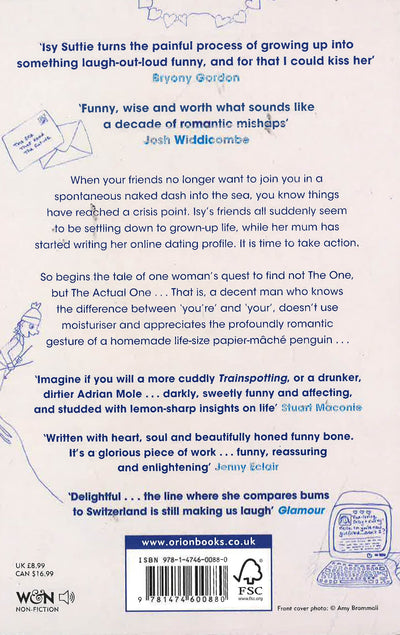 'Isy Suttie turns the painful process of growing up into
something laugh-out-loud funny, and for that I could kiss her'
Bryony Gordon
'Funny, wise and worth what sounds like
a decade of romantic mishaps'
Josh Widdicombe
When your friends no longer want to join you in a
spontaneous naked dash into the sea, you know things
have reached a crisis point. Isy's friends all suddenly seem
to be settling down to grown-up life, while her mum has
started writing her online dating profile. It is time to take action.
So begins the tale of one woman's quest to find not The One,
but The Actual One . . . That is, a decent man who knows
the difference between 'you're' and 'your', doesn't use
moisturiser and appreciates the profoundly romantic
gesture of a homemade life-size papier-mâché penguin . . .
'Imagine if you will a more cuddly Trainspotting, or a drunker,
dirtier Adrian Mole . . . darkly, sweetly funny and affecting,
and studded with lemon-sharp insights on life' Stuart Maconie
'Written with heart, soul and beautifully honed funny bone.
It's a glorious piece of work . . . funny, reassuring
and enlightening' Jenny Eclair
'Delightful . . . the line where she compares bums
to Switzerland is still making us laugh' Glamour
www.orionbooks.co.uk
UK £8.99
CAN $16.99
W&N
NON-FICTION
ISBN 978-1-4746-0088-0
9 781474 600880
FSC
www.fsc.org
Front cover photo: © Amy Brammall